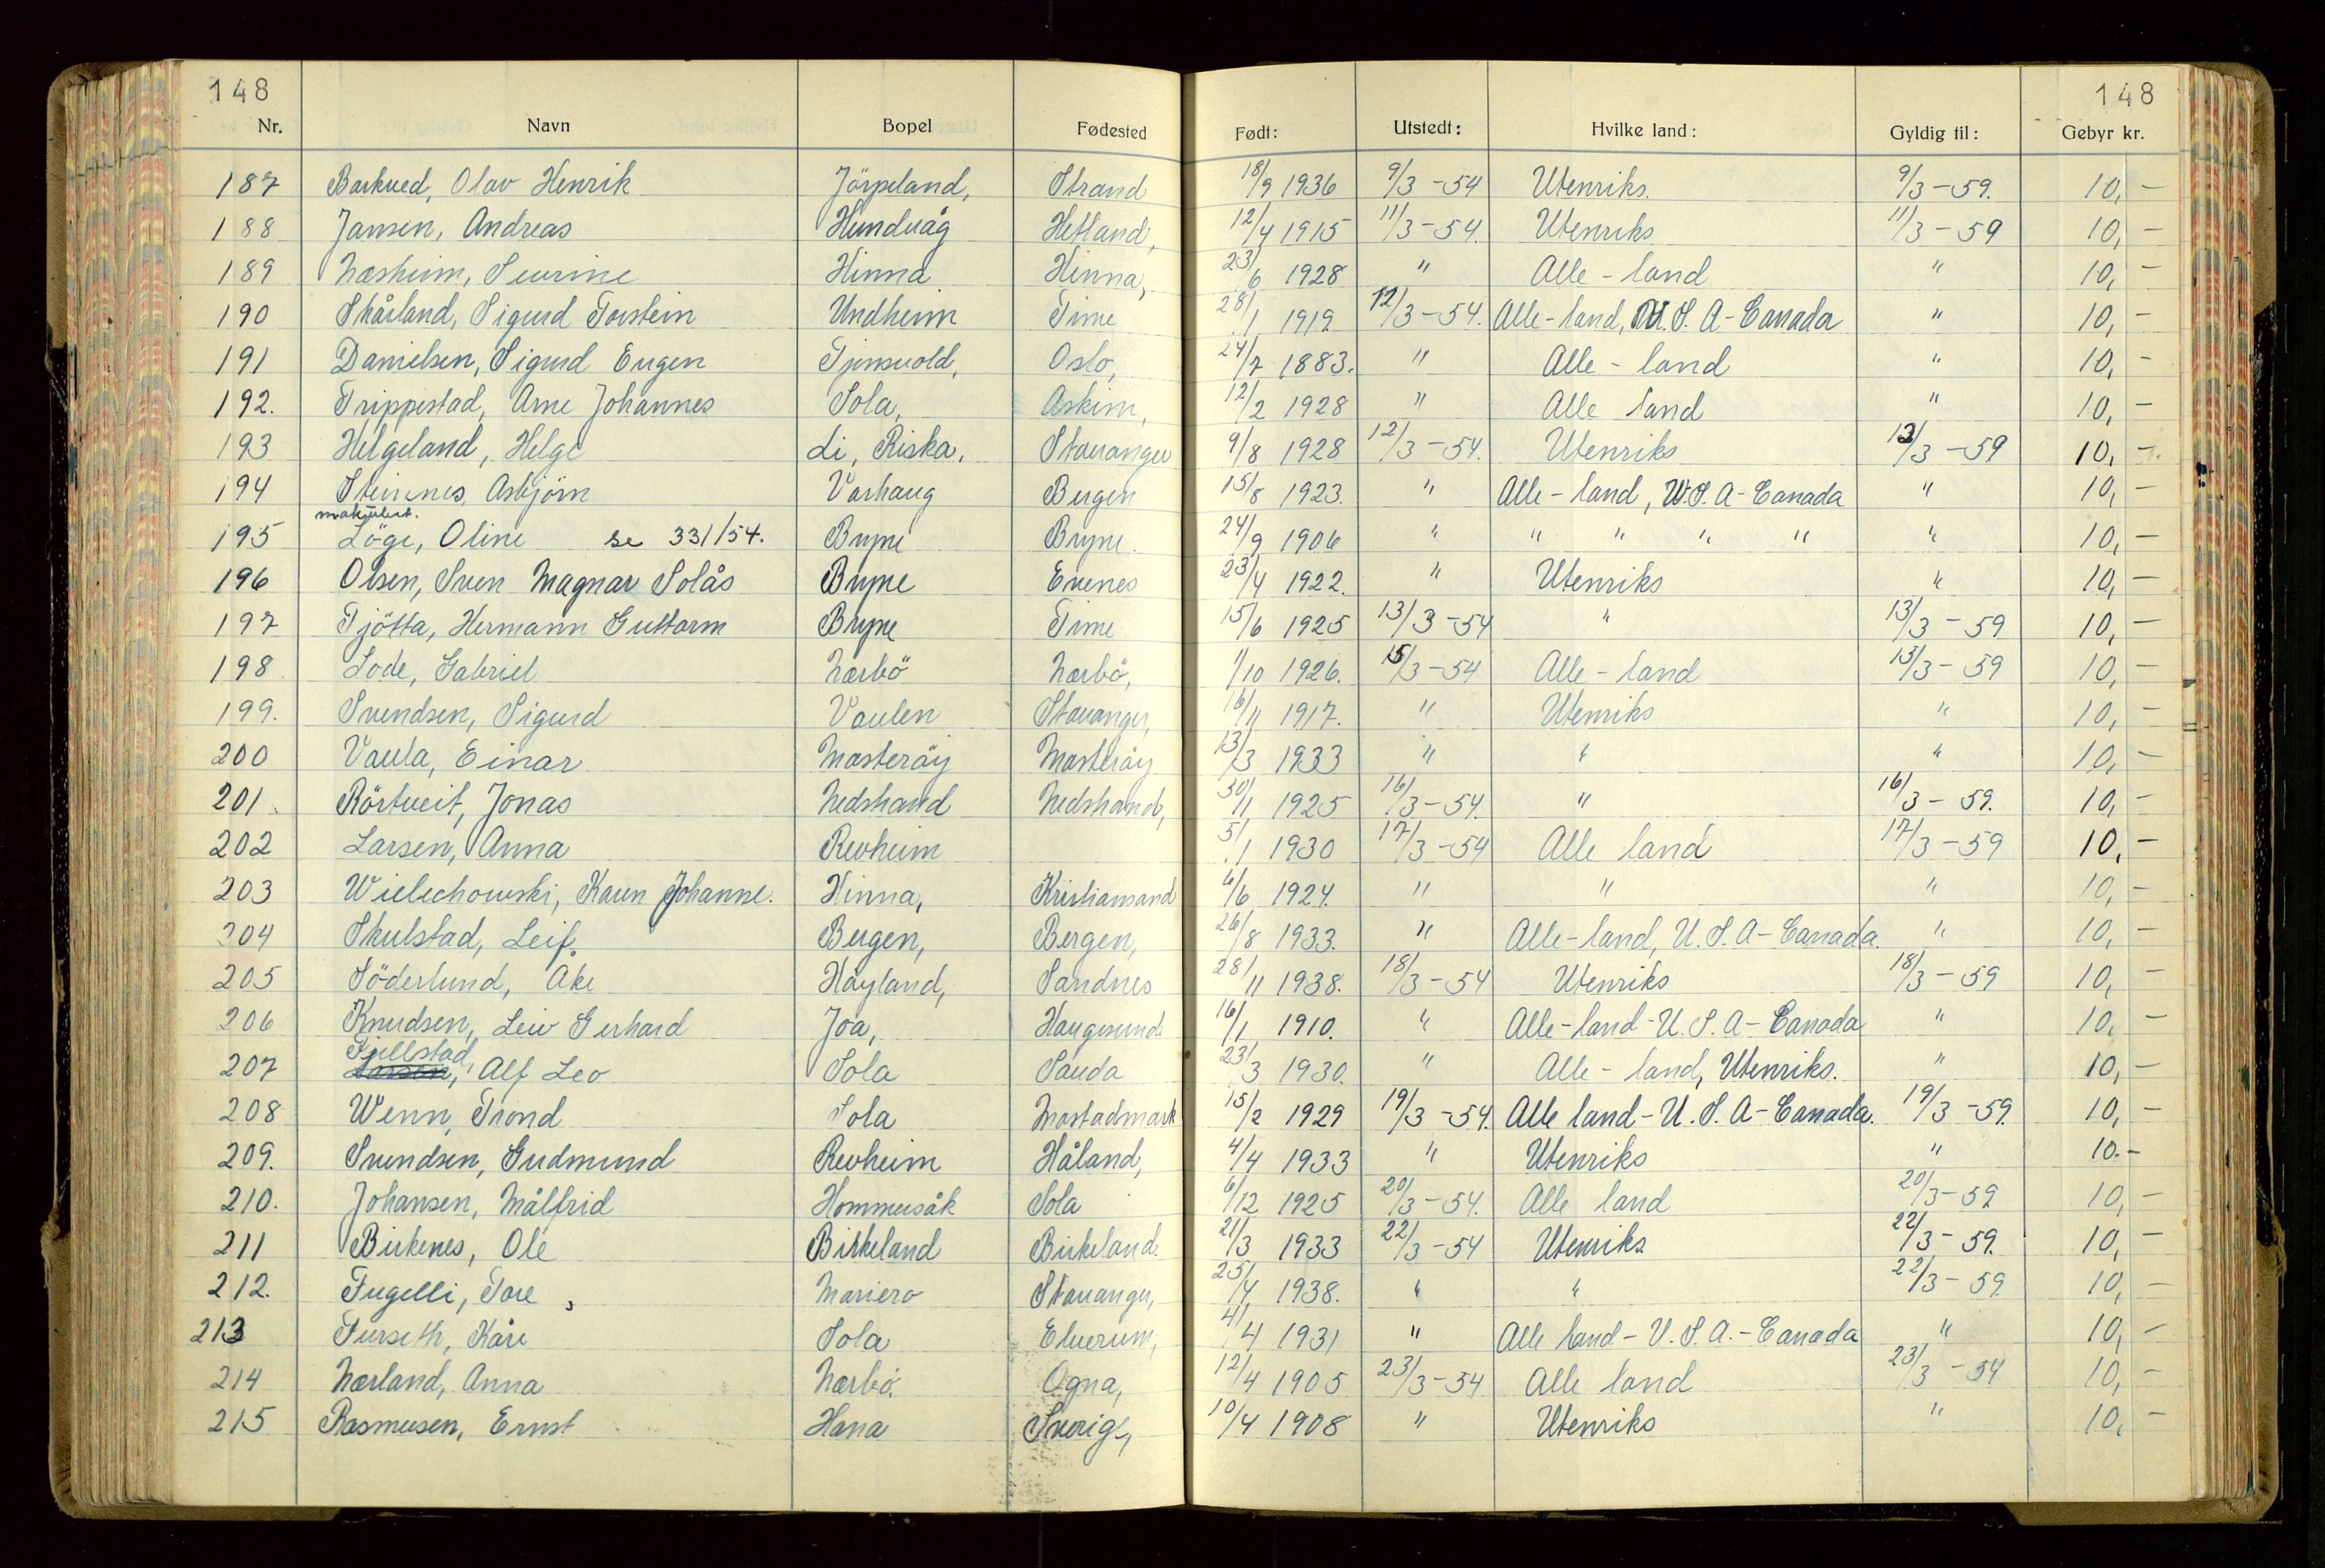 148 148
Nr. Navn Bopel Fødested Født: Utstedt: Hvilke land: Gyldig til: Gebyr kr.
187 Barkved, Olav Henrik Jörpeland, Strand 18/9 1936 9/3-54 Utenriks. 9/3-59. 10,-
188 Jansen, Andreas Hundvåg Hetland, 12/4 1915 11/3-54. Utenriks 11/3-59 10,-
189 Næsheim, Sevrine Hinna Hinna, 23/6 1928 " Alle-land " 10,-
190 Skårland, Sigurd Torstein Undheim Time 28/1 1919. 12/3-54. Alle-land, U.S.A-Canada " 10,-
191 Danielsen, Sigurd Eugen Tjensvold, Oslo, 24/7 1883. " Alle-land " 10,-
192. Trippestad, Arne Johannes Sola, Askim, 12/2 1928 " Alle land " 10,-
193 Helgeland, Helge Li, Riska, Stavanger 9/8 1928 12/3-54. Utenriks 12/3-59 10,-
194 Steinnes, Asbjörn Varhaug Bergen 15/8 1923. " Alle-land, U.S.A-Canada " 10,-
makulert.
195 Löge, Oline se 331/54. Bryne Bryne. 24/9 1906 " " " " " " 10,-
196 Olsen, Sven Magnar Solås Bryne Evenes 23/4 1922. " Utenriks " 10,-
197 Tjötta, Hermann Guttorm Bryne Time 15/6 1925 13/3-54 " 13/3-59 10,-
198 Lode, Gabriel Nærbö Nærbö, 1/10 1926. 15/3-54 Alle-land 15/3-59 10,-
199. Svendsen, Sigurd Vaulen Stavanger, 16/11 1917. " Utenriks " 10,-
200 Vaula, Einar Mosteröy Mosteröy 13/3 1933 " " " 10,-
201. Rörtveit, Jonas Nedstrand Nedstrand, 30/11 1925 16/3-54. " 16/3-59. 10,-
202 Larsen, Anna Revheim 5/1 1930 17/3-54 Alle land 17/3-59 10,-
203 Wielechowski, Karen Johanne. Hinna, Kristiansand 6/6 1924. " " " 10,-
204 Skulstad, Leif. Bergen, Bergen, 26/8 1933. " Alle-land, U.S.A-Canada. " 10,-
205 Söderlund, Åke Höyland, Sandnes 28/11 1938. 18/3-54 Utenriks 18/3-59 10,-
206 Knudsen, Leiv Gerhard Joa, Haugesund 16/1 1910. " Alle-land-U.S.A-Canada " 10,-
Fjellstad,
207 Larsen, Alf Leo Sola Sauda 23/3 1930. " Alle-land, Utenriks. " 10,-
208 Wenn, Trond Sola Mostadmark 15/2 1929 19/3-54. Alle land-U.S.A-Canada. 19/3-59. 10,-
209. Svendsen, Gudmund Revheim Håland, 4/4 1933 " Utenriks " 10.-
210. Johansen, Målfrid Hommersåk Sola 6/12 1925 20/3-54. Alle land 20/3-59 10,-
211 Birkenes, Ole Birkeland Birkeland. 21/3 1933 22/3-54 Utenriks 22/3-59. 10,-
212. Fugelli, Tore, Mariero Stavanger, 25/4 1938. " " 22/3-59 10,-
213 Furseth, Kåre Sola Elverum, 4/4 1931 " Alle land-U.S.A.-Canada " 10,-
214 Nærland, Anna Nærbö. Ogna, 12/4 1905 23/3-54 Alle land 23/3-54 10,-
215 Rasmussen, Ernst Hana Sverige, 10/4 1908 " Utenriks " 10,-